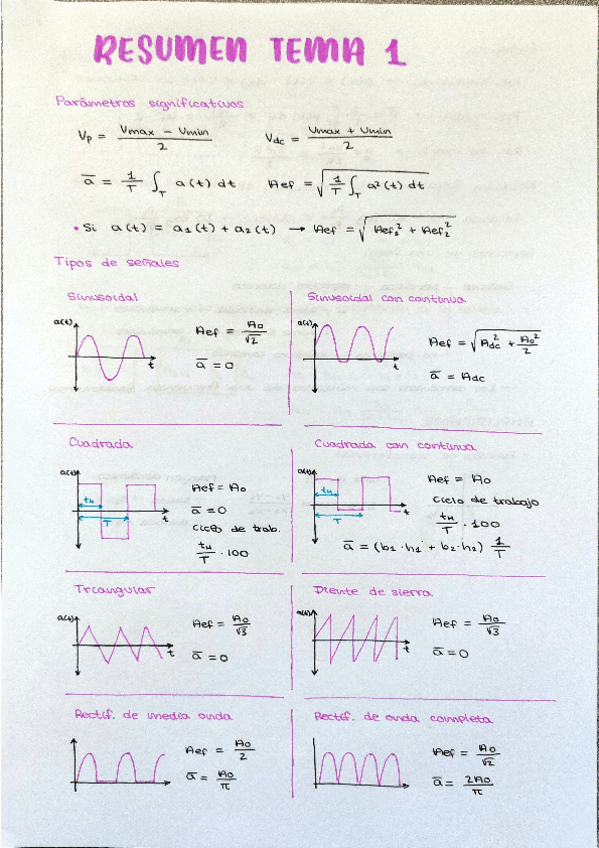 RESUMEN TEMA 1
Parámetros significativos
Vp = (Vmax - Vmin)/2    Vdc = (Vmax + Vmin)/2
a̅ = 1/T ∫_T a(t) dt    Aef = √(1/T ∫_T a²(t) dt)
• Si a(t) = a₁(t) + a₂(t) → Aef = √(Aef₁² + Aef₂²)
Tipos de señales
Sinusoidal
a(t)
t
Aef = A₀/√2
a̅ = 0
Sinusoidal con continua
a(t)
t
Aef = √(Adc² + A₀²/2)
a̅ = Adc
Cuadrada
a(t)
tH
T
Aef = A₀
a̅ = 0
Ciclo de trab.
tH/T · 100
Cuadrada con continua
a(t)
tH
T
t
Aef = A₀
Ciclo de trabajo
tH/T · 100
a̅ = (b₁·h₁ + b₂·h₂) 1/T
Triangular
a(t)
t
Aef = A₀/√3
a̅ = 0
Diente de sierra
a(t)
t
Aef = A₀/√3
a̅ = 0
Rectif. de media onda
Aef = A₀/2
a̅ = A₀/π
Rectif. de onda completa
Aef = A₀/√2
a̅ = 2A₀/π